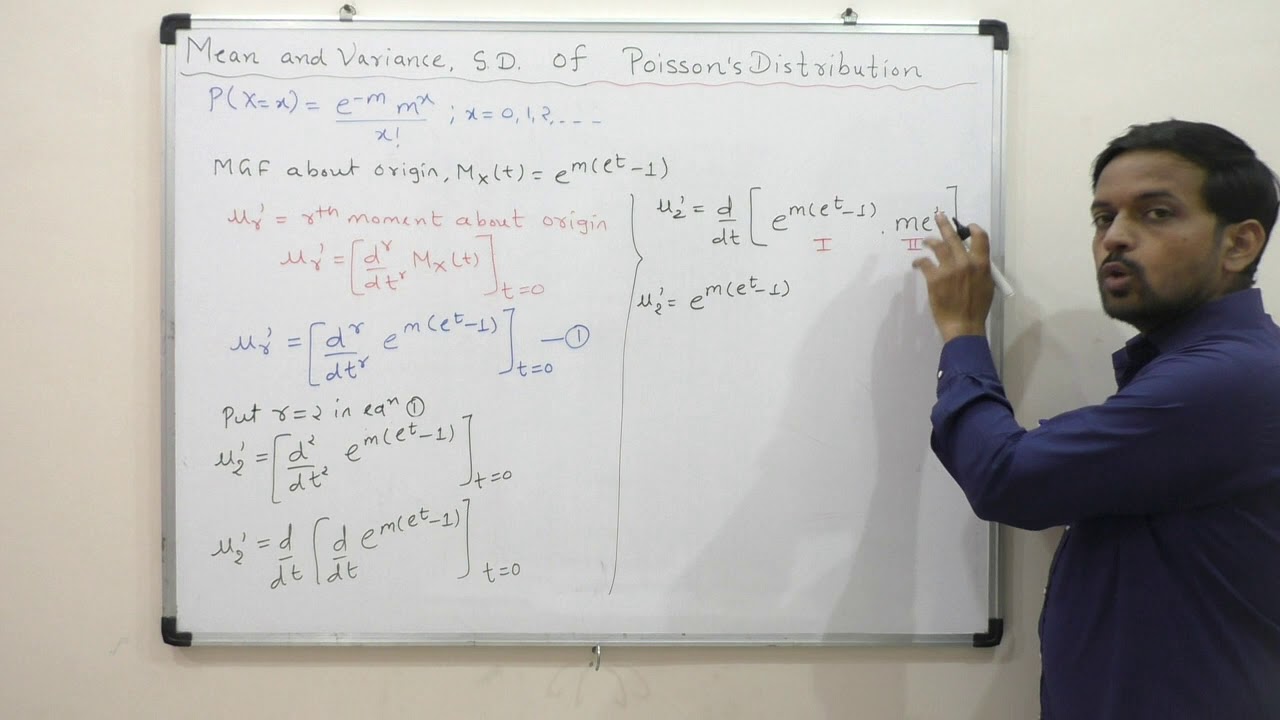 Mean and Variance, S.D. of Poisson's Distribution
P(X=x) = e^-m m^x / x! ; x = 0, 1, 2, - - - -
MGF about origin, Mx(t) = e^m(e^t - 1)
μr' = rth moment about origin
μr' = [d^r/dt^r Mx(t)] t=0
μr' = [d^r/dt^r e^m(e^t-1)] t=0 — ①
Put r=2 in eqn ①
μ2' = [d²/dt² e^m(e^t-1)] t=0
μ2' = d/dt [d/dt e^m(e^t-1)] t=0
μ2' = d/dt [e^m(e^t-1) . me^t]
I II
μ2' = e^m(e^t-1)